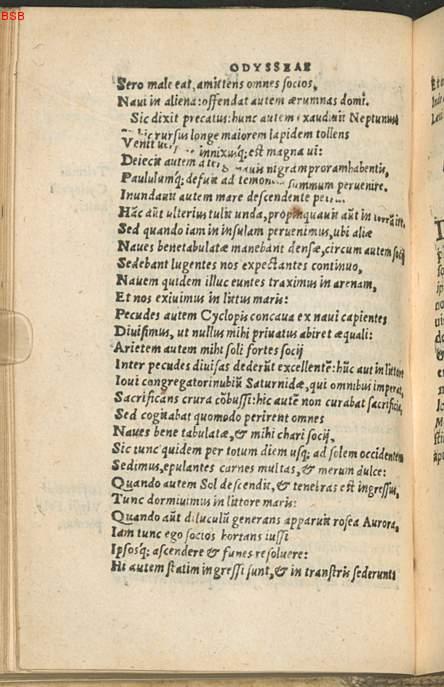 BSB
ODYSSEAE
Sero male eat, amittens omnes socios,
Naui in aliena: offendat autem ærumnas domi.
Sic dixit precatus: hunc autem exaudiuit Neptunus
hic rursus longe maiorem lapidem tollens
Venit innixusq́; est magna ui:
Deiecit autem nauis nigram proram habentis,
Paululumq́; defuit ad temonem summum peruenire.
Inundauit autem mare descendente
Hãc aũt ulterius tulit unda, propinquauit aũt in
Sed quando iam in insulam peruenimus, ubi aliæ
Naues benetabulatæ manebant densæ, circum autem socij
Sedebant lugentes nos expectantes continuo,
Nauem quidem illuc euntes traximus in arenam,
Et nos exiuimus in littus maris:
Pecudes autem Cyclopis concaua ex naui capientes
Diuisimus, ut nullus mihi priuatus abiret æquali:
Arietem autem mihi soli fortes socij
Inter pecudes diuisas dederũt excellentẽ: hũc aut in littore
Ioui congregatori nubiũ Saturnidæ, qui omnibus imperat,
Sacrificans crura cõbussi: hic autẽ non curabat sacrificia,
Sed cogitabat quomodo perirent omnes
Naues bene tabulatæ, & mihi chari socij,
Sic tunc quidem per totum diem usq; ad solem occidentem
Sedimus, epulantes carnes multas, & merum dulce:
Quando autem Sol descendit, & tenebras est ingressus,
Tunc dormiuimus in littore maris:
Quando aũt diluculũ generans apparuit rosea Aurora,
Iam tunc ego socios hortans iussi
Ipsosq́; ascendere & funes resoluere:
Hi autem statim ingressi sunt, & in transtris sederunt: